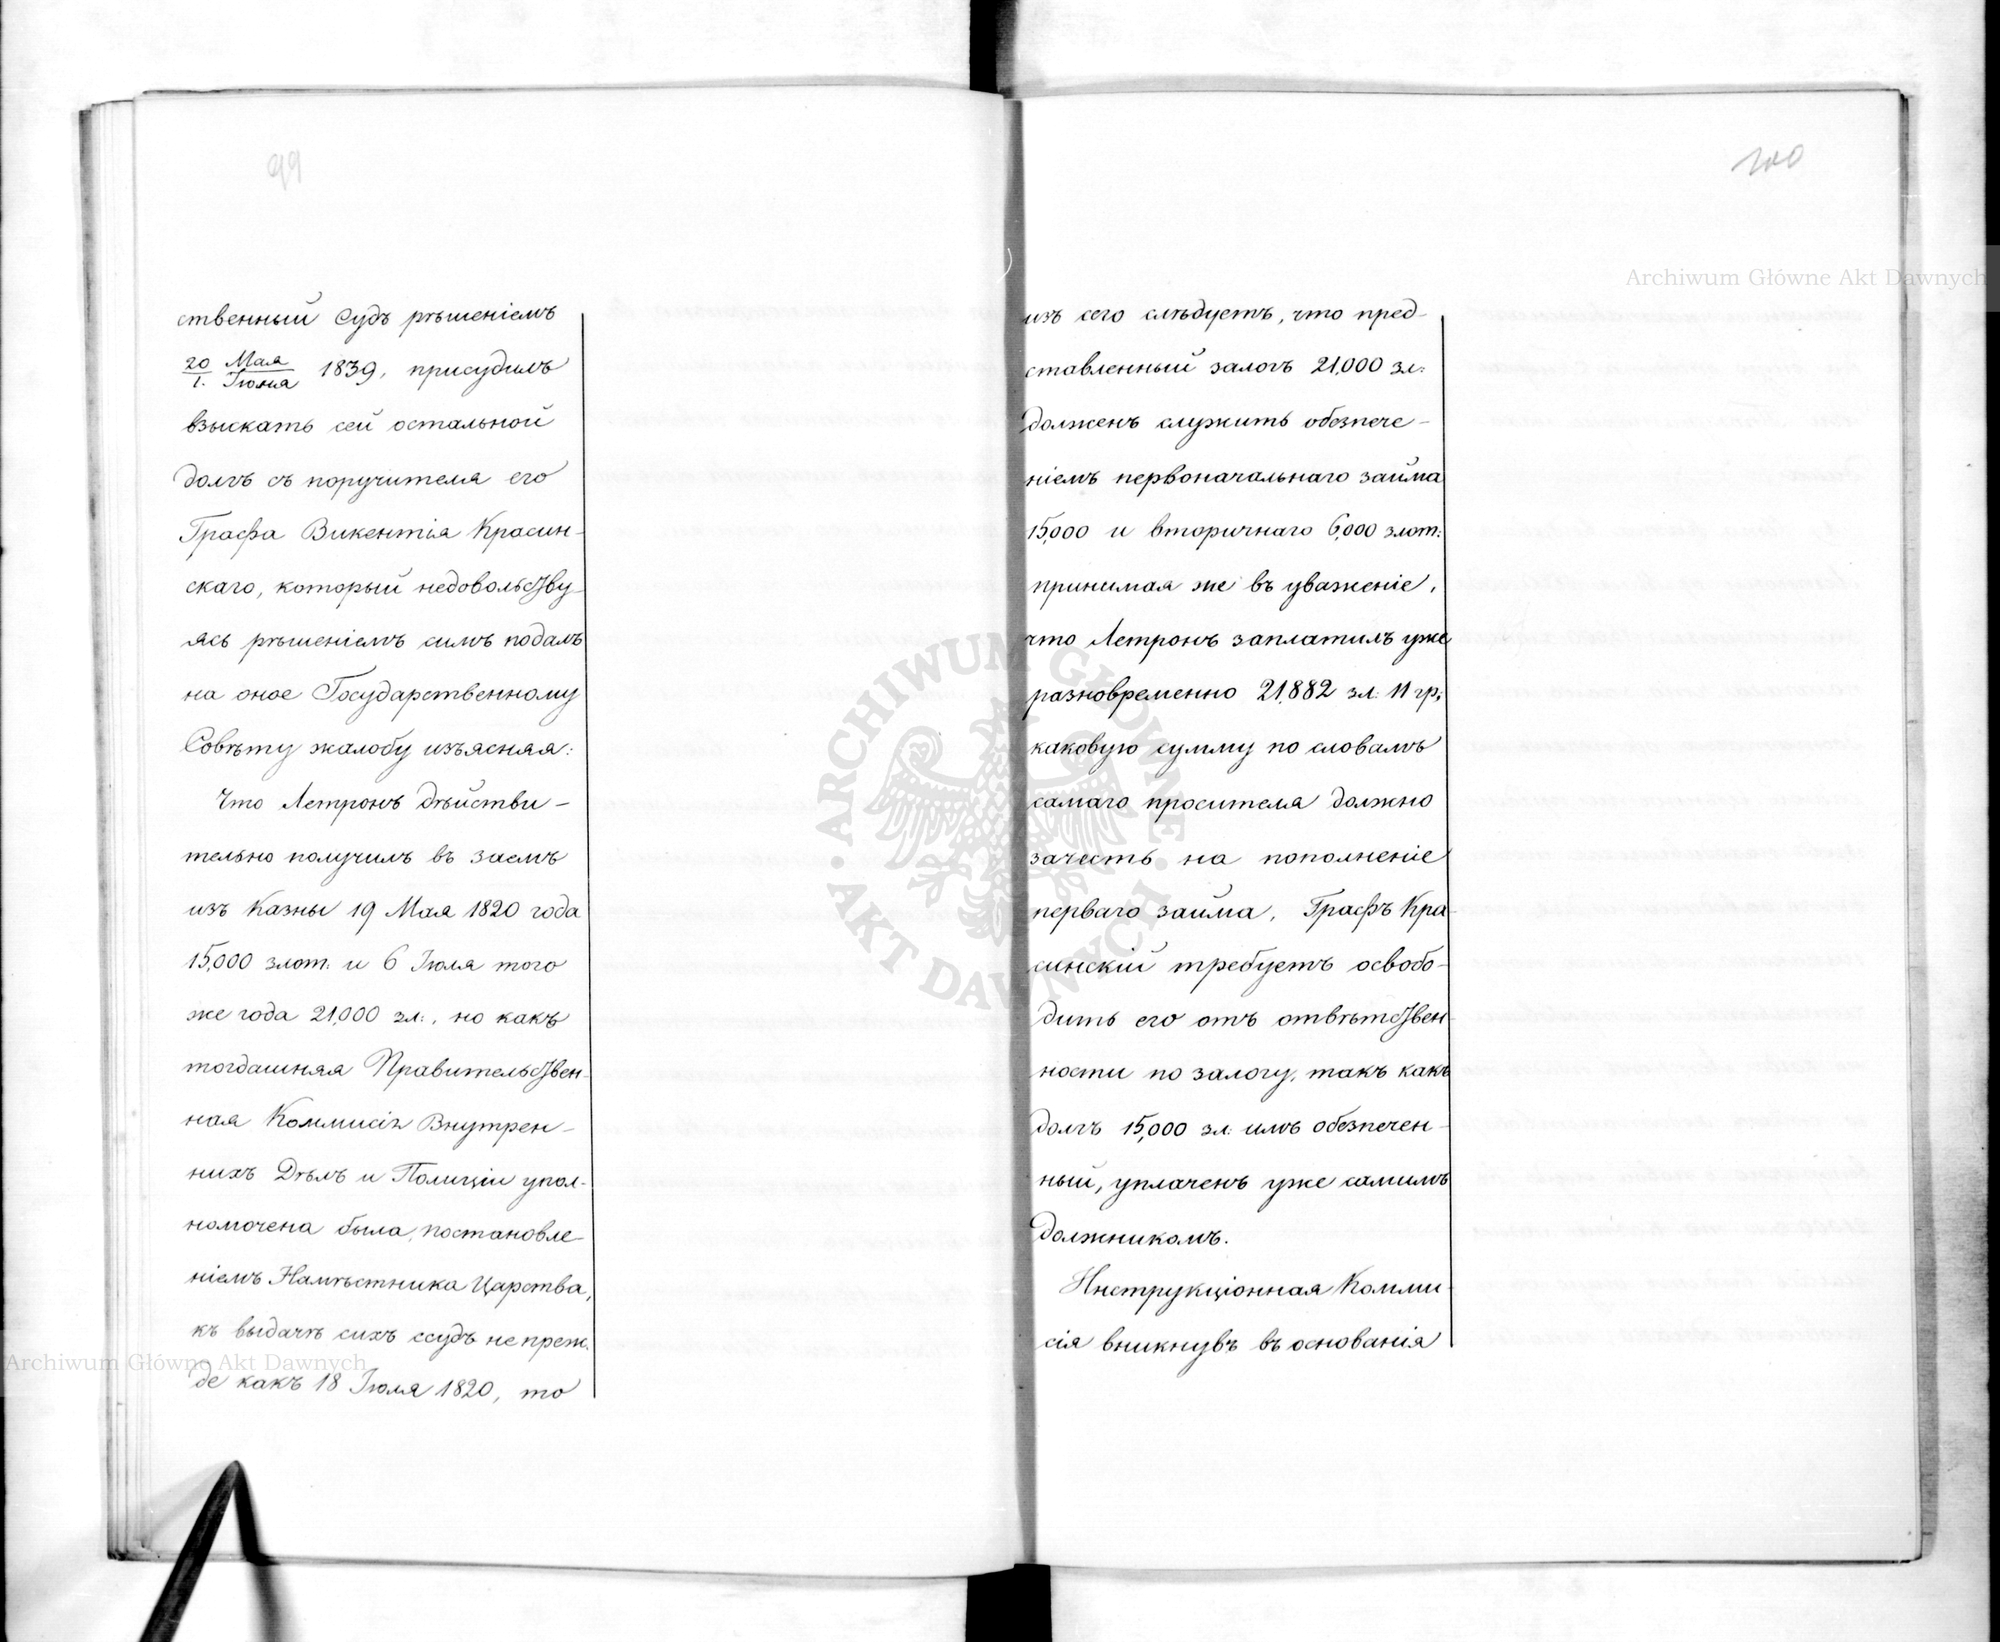 99
ственный Судъ рѣшеніемъ
20 Мая / 1. Іюня 1839, присудилъ
взыскать сей остальной
долгъ съ поручителя его
Графа Викентія Красин-
скаго, который недовольству-
ясь рѣшеніемъ симъ подалъ
на оное Государственному
Совѣту жалобу изъясняя:
Что Летронъ дѣйстви-
тельно получилъ въ заемъ
изъ Казны 19 Мая 1820 года
15,000 злот: и 6 Іюля того
же года 21,000 зл:, но какъ
тогдашняя Правительствен-
ная Коммисія Внутрен-
нихъ Дѣлъ и Полиціи упол-
номочена была, постановле-
ніемъ Намѣстника Царства,
къ выдачѣ сихъ ссудъ не преж-
де какъ 18 Іюля 1820, то
100
изъ сего слѣдуетъ, что пред-
ставленный залогъ 21,000 зл:
долженъ служить обезпече-
ніемъ первоначальнаго займа
15,000 и вторичнаго 6,000 злот:
принимая же въ уваженіе,
что Летронъ заплатилъ уже
разновременно 21,882 зл: 11 гр;
каковую сумму по словамъ
самаго просителя должно
зачесть на пополненіе
перваго займа, Графъ Кра-
синскій требуетъ освобо-
дить его отъ отвѣтствен-
ности по залогу, такъ какъ
долгъ 15,000 зл: имъ обезпечен-
ный, уплаченъ уже самимъ
должникомъ.
Инструкціонная Комми-
сія вникнувъ въ основанія
Archiwum Główne Akt Dawnych
ARCHIWUM GŁÓWNE · AKT DAWNYCH ·
Archiwum Główne Akt Dawnych